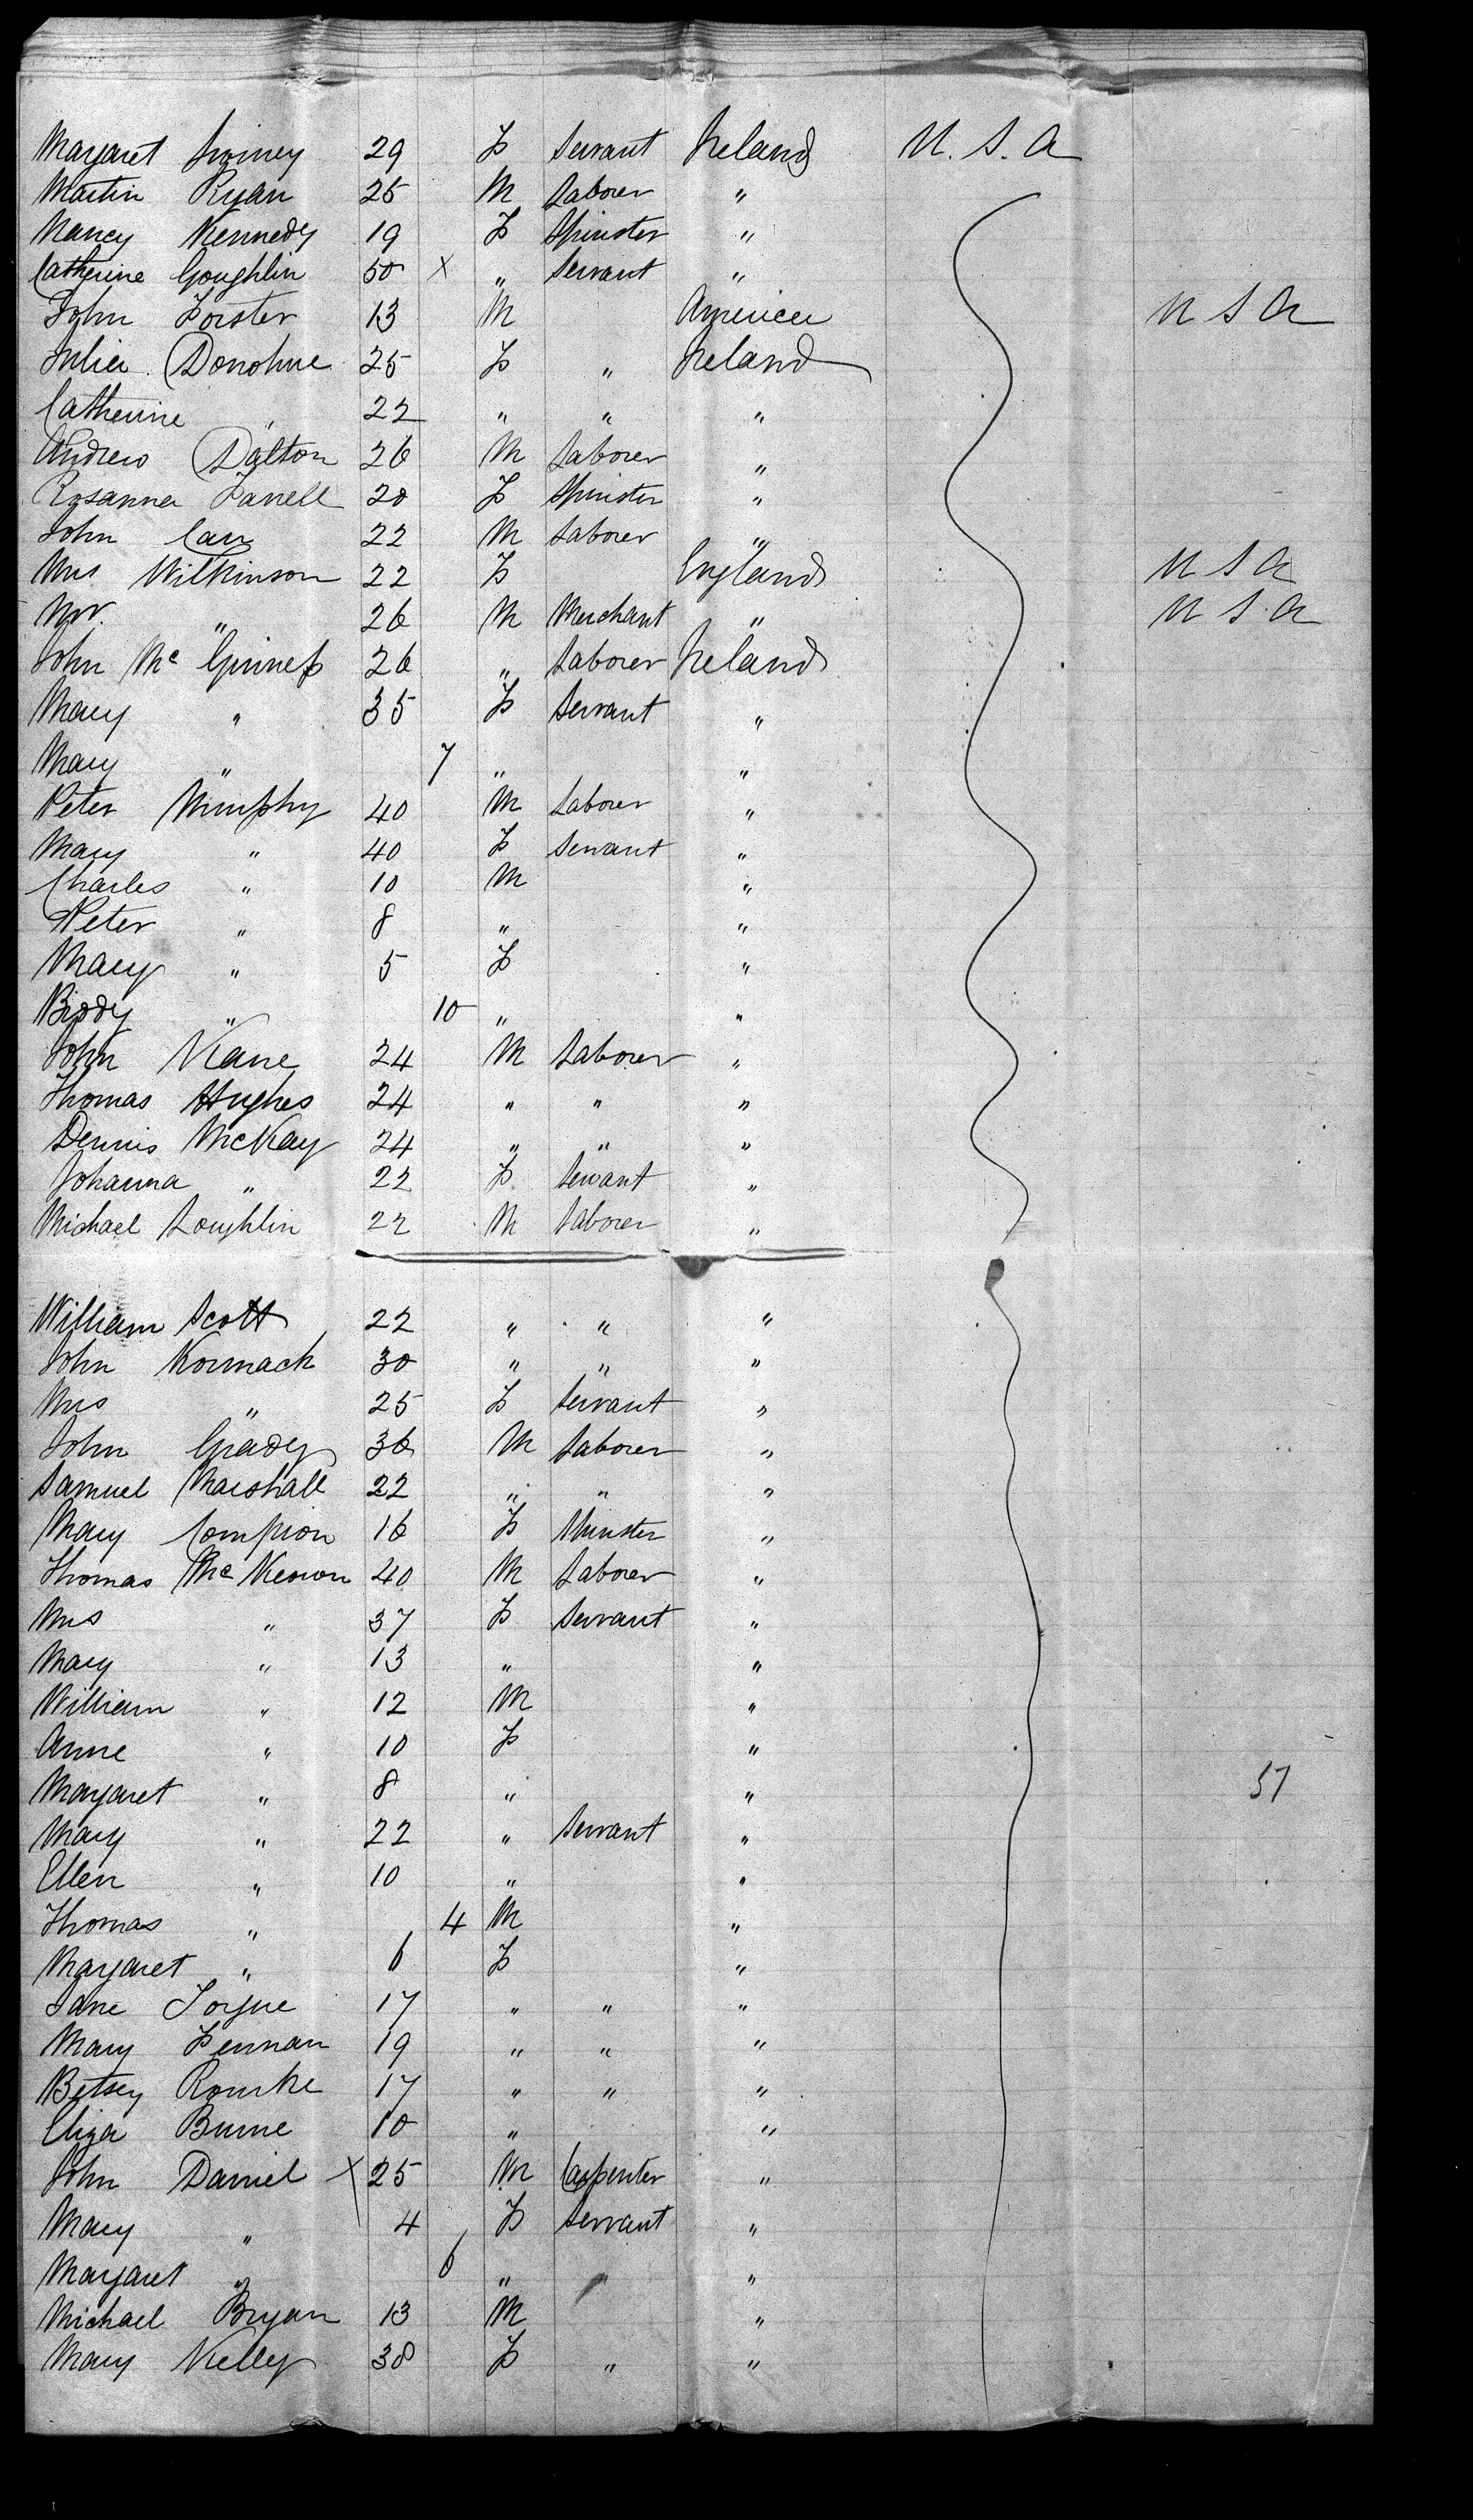 Margaret 29 F Servant Ireland U. S. A
Martin Ryan 25 M Laborer "
Nancy Kennedy 19 F Spinster "
Catherine Coughlin 50 x " Servant "
John Forster 13 M America U S A
Julia Donohue 25 F " Ireland
Catherine " 22 " " "
Andrew Dalton 26 M Laborer "
Rosanna Farrell 20 F Spinster "
John Carr 22 M Laborer "
Mrs Wilkinson 22 F England U S A
Mr. " 26 M Merchant " U S A
John Mc Ginness 26 " Laborer Ireland
Mary " 35 F Servant "
Mary " 7 " "
Peter Murphy 40 M Laborer "
Mary " 40 F Servant "
Charles " 10 M "
Peter " 8 " "
Mary " 5 F "
Biddy " 10 " "
John Kane 24 M Laborer "
Thomas Hughes 24 " " "
Dennis McKay 24 " " "
Johanna " 22 F Servant "
Michael Loughlin 22 M Laborer "
William Scott 22 " " "
John Kormack 30 " " "
Mrs " 25 F Servant "
John Grady 36 M Laborer "
Samuel Marshall 22 " " "
Mary Compion 16 F Spinster "
Thomas Mc Keown 40 M Laborer "
Mrs " 37 F Servant "
Mary " 13 " "
William " 12 M "
Anne " 10 F "
Margaret " 8 " " 57
Mary " 22 " Servant "
Ellen " 10 " "
Thomas " 4 M "
Margaret " 6 F "
Jane 17 " " "
Mary Fennan 19 " " "
Betsey Rourke 17 " " "
Eliza Burne 10 " "
John Daniel x 25 M Carpenter "
Mary " 4 F Servant "
Margaret " 6 " "
Michael Bryan 13 M "
Mary Kelly 38 F " "